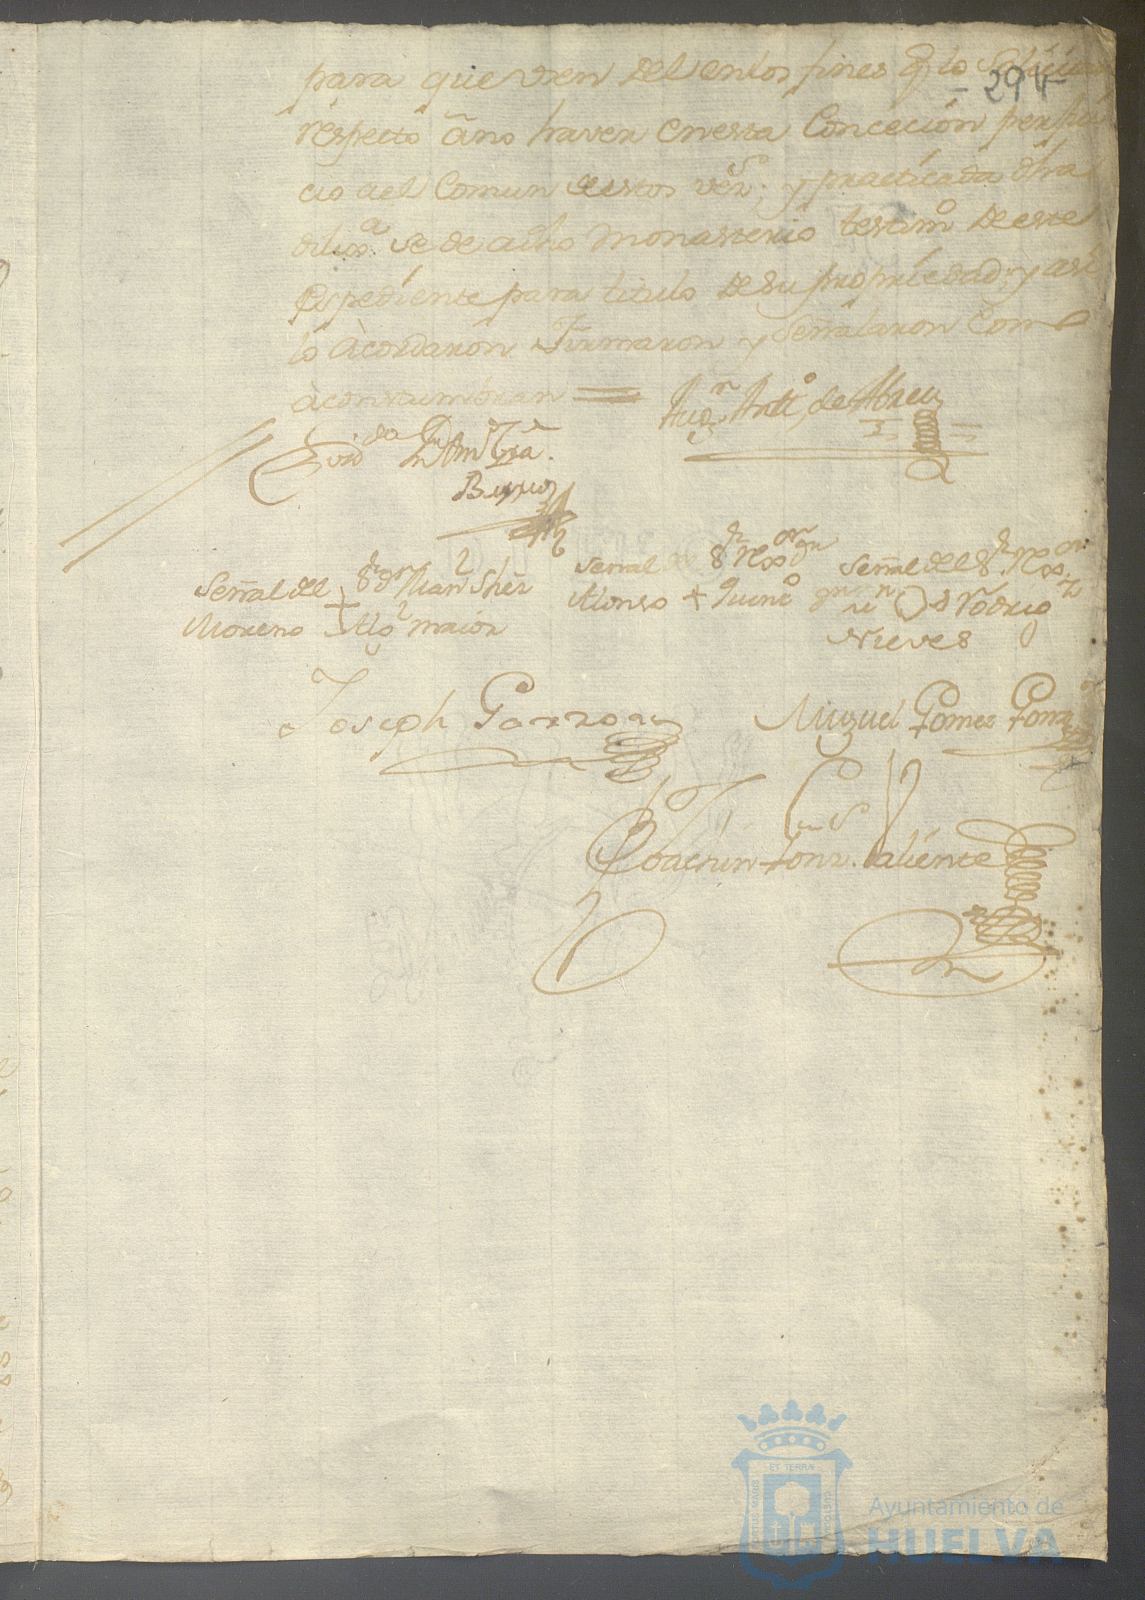 para que usen del en los fines q̃ lo solicitan
29 v
respecto â no haver en esta Conceción perjui
cio del Comun de estos vezs; y practicada dhã
dilixa se de a dho monasterio testimo de este
Expediente para titulo de su propriedad: y así
lo Acordaron Firmaron y Señalaron Como
acostumbran =
Augn Antto de Abreu
Lizdo Dn
Señal del Sr Dn Juan Shez
Moreno + Alo maior
Señal de Sr Rexor
Alonso + Quintº
Señal del Sr Rexor
Rodrigz
Nieves
Joseph Garzon
Miguel Gomez Gonz
Joachin Gonz. Valiente
ET TERRÆ
PORTUS MARIS
CUSTODIA
Ayuntamiento de
HUELVA